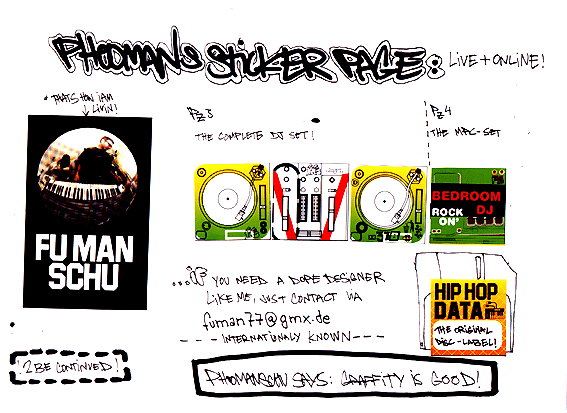 PHOOMANS STICKER PAGE: LIVE + ONLINE!
THATS HOW IAM
LIVIN!
Pz 3
THE COMPLETE DJ SET!
Pz 4
THE MPC-SET
FU MAN
SCHU
BEDROOM
DJ
ROCK
ON'
...IF YOU NEED A DOPE DESIGNER
LIKE ME, JUST CONTACT VIA
fuman77@gmx.de
INTERNATIONALY KNOWN
HIP HOP
DATA
THE ORIGINAL
DISC-LABEL!
2 BE CONTINUED!
PHOOMANSCHU SAYS: GRAFFITY IS GOOD!